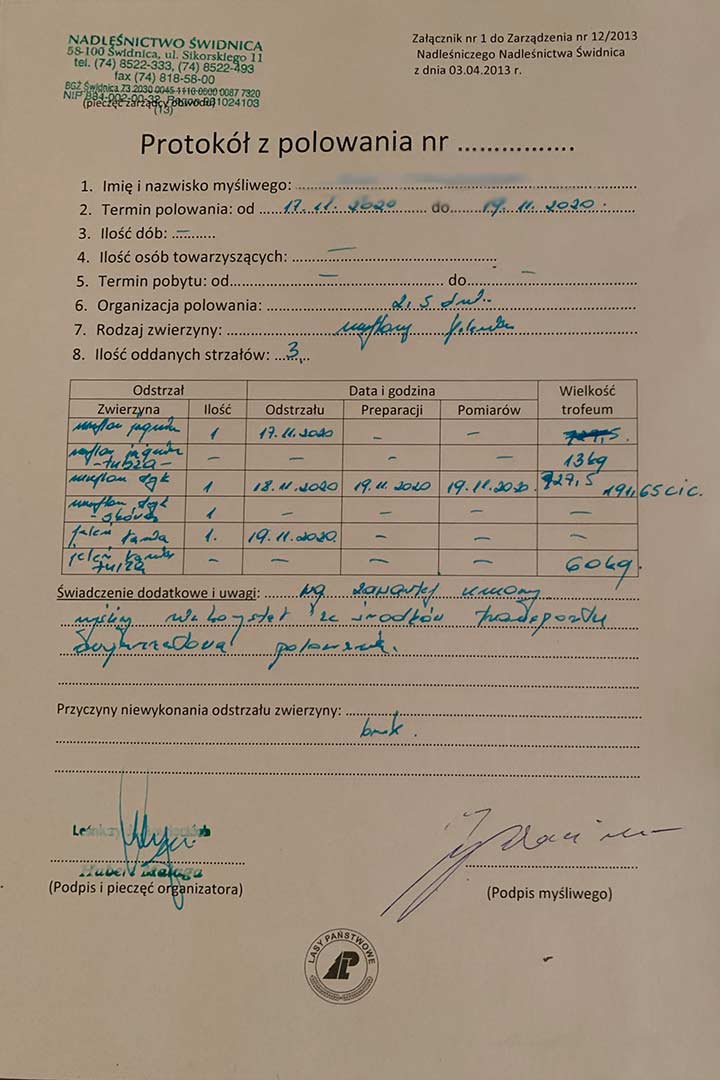 NADLEŚNICTWO ŚWIDNICA
58-100 Świdnica, ul. Sikorskiego 11
tel. (74) 8522-333, (74) 8522-493
fax (74) 818-58-00
BGŻ Świdnica 73 2030 0045 1110 0000 0087 7320
NIP 884-002-00-32, Regon 931024103
(pieczęć zarządcy obwodu)
(13)
Załącznik nr 1 do Zarządzenia nr 12/2013
Nadleśniczego Nadleśnictwa Świdnica
z dnia 03.04.2013 r.
Protokół z polowania nr ...............
1. Imię i nazwisko myśliwego:
2. Termin polowania: od 17.11.2020 do 19.11.2020.
3. Ilość dób: –
4. Ilość osób towarzyszących: –
5. Termin pobytu: od – do –
6. Organizacja polowania: 2,5 dni.
7. Rodzaj zwierzyny: muflony jelenie
8. Ilość oddanych strzałów: 3
Odstrzał Data i godzina Wielkość trofeum
Zwierzyna Ilość Odstrzału Preparacji Pomiarów
muflon jagnię 1 17.11.2020 – –
muflon jagnię – tusza – – – – – 13 kg
muflon tryk 1 18.11.2020 19.11.2020 19.11.2020 127,5 191,65 CIC.
muflon tryk – skóra 1 – – – –
jeleń łania 1. 19.11.2020 – – –
jeleń łania tusza – – – – 60 kg.
Świadczenie dodatkowe i uwagi: wg zawartej umowy
myśliwy nie korzystał ze środków transportu
organizatora polowania.
Przyczyny niewykonania odstrzału zwierzyny:
brak.
Hubert
(Podpis i pieczęć organizatora)
(Podpis myśliwego)
LASY PAŃSTWOWE